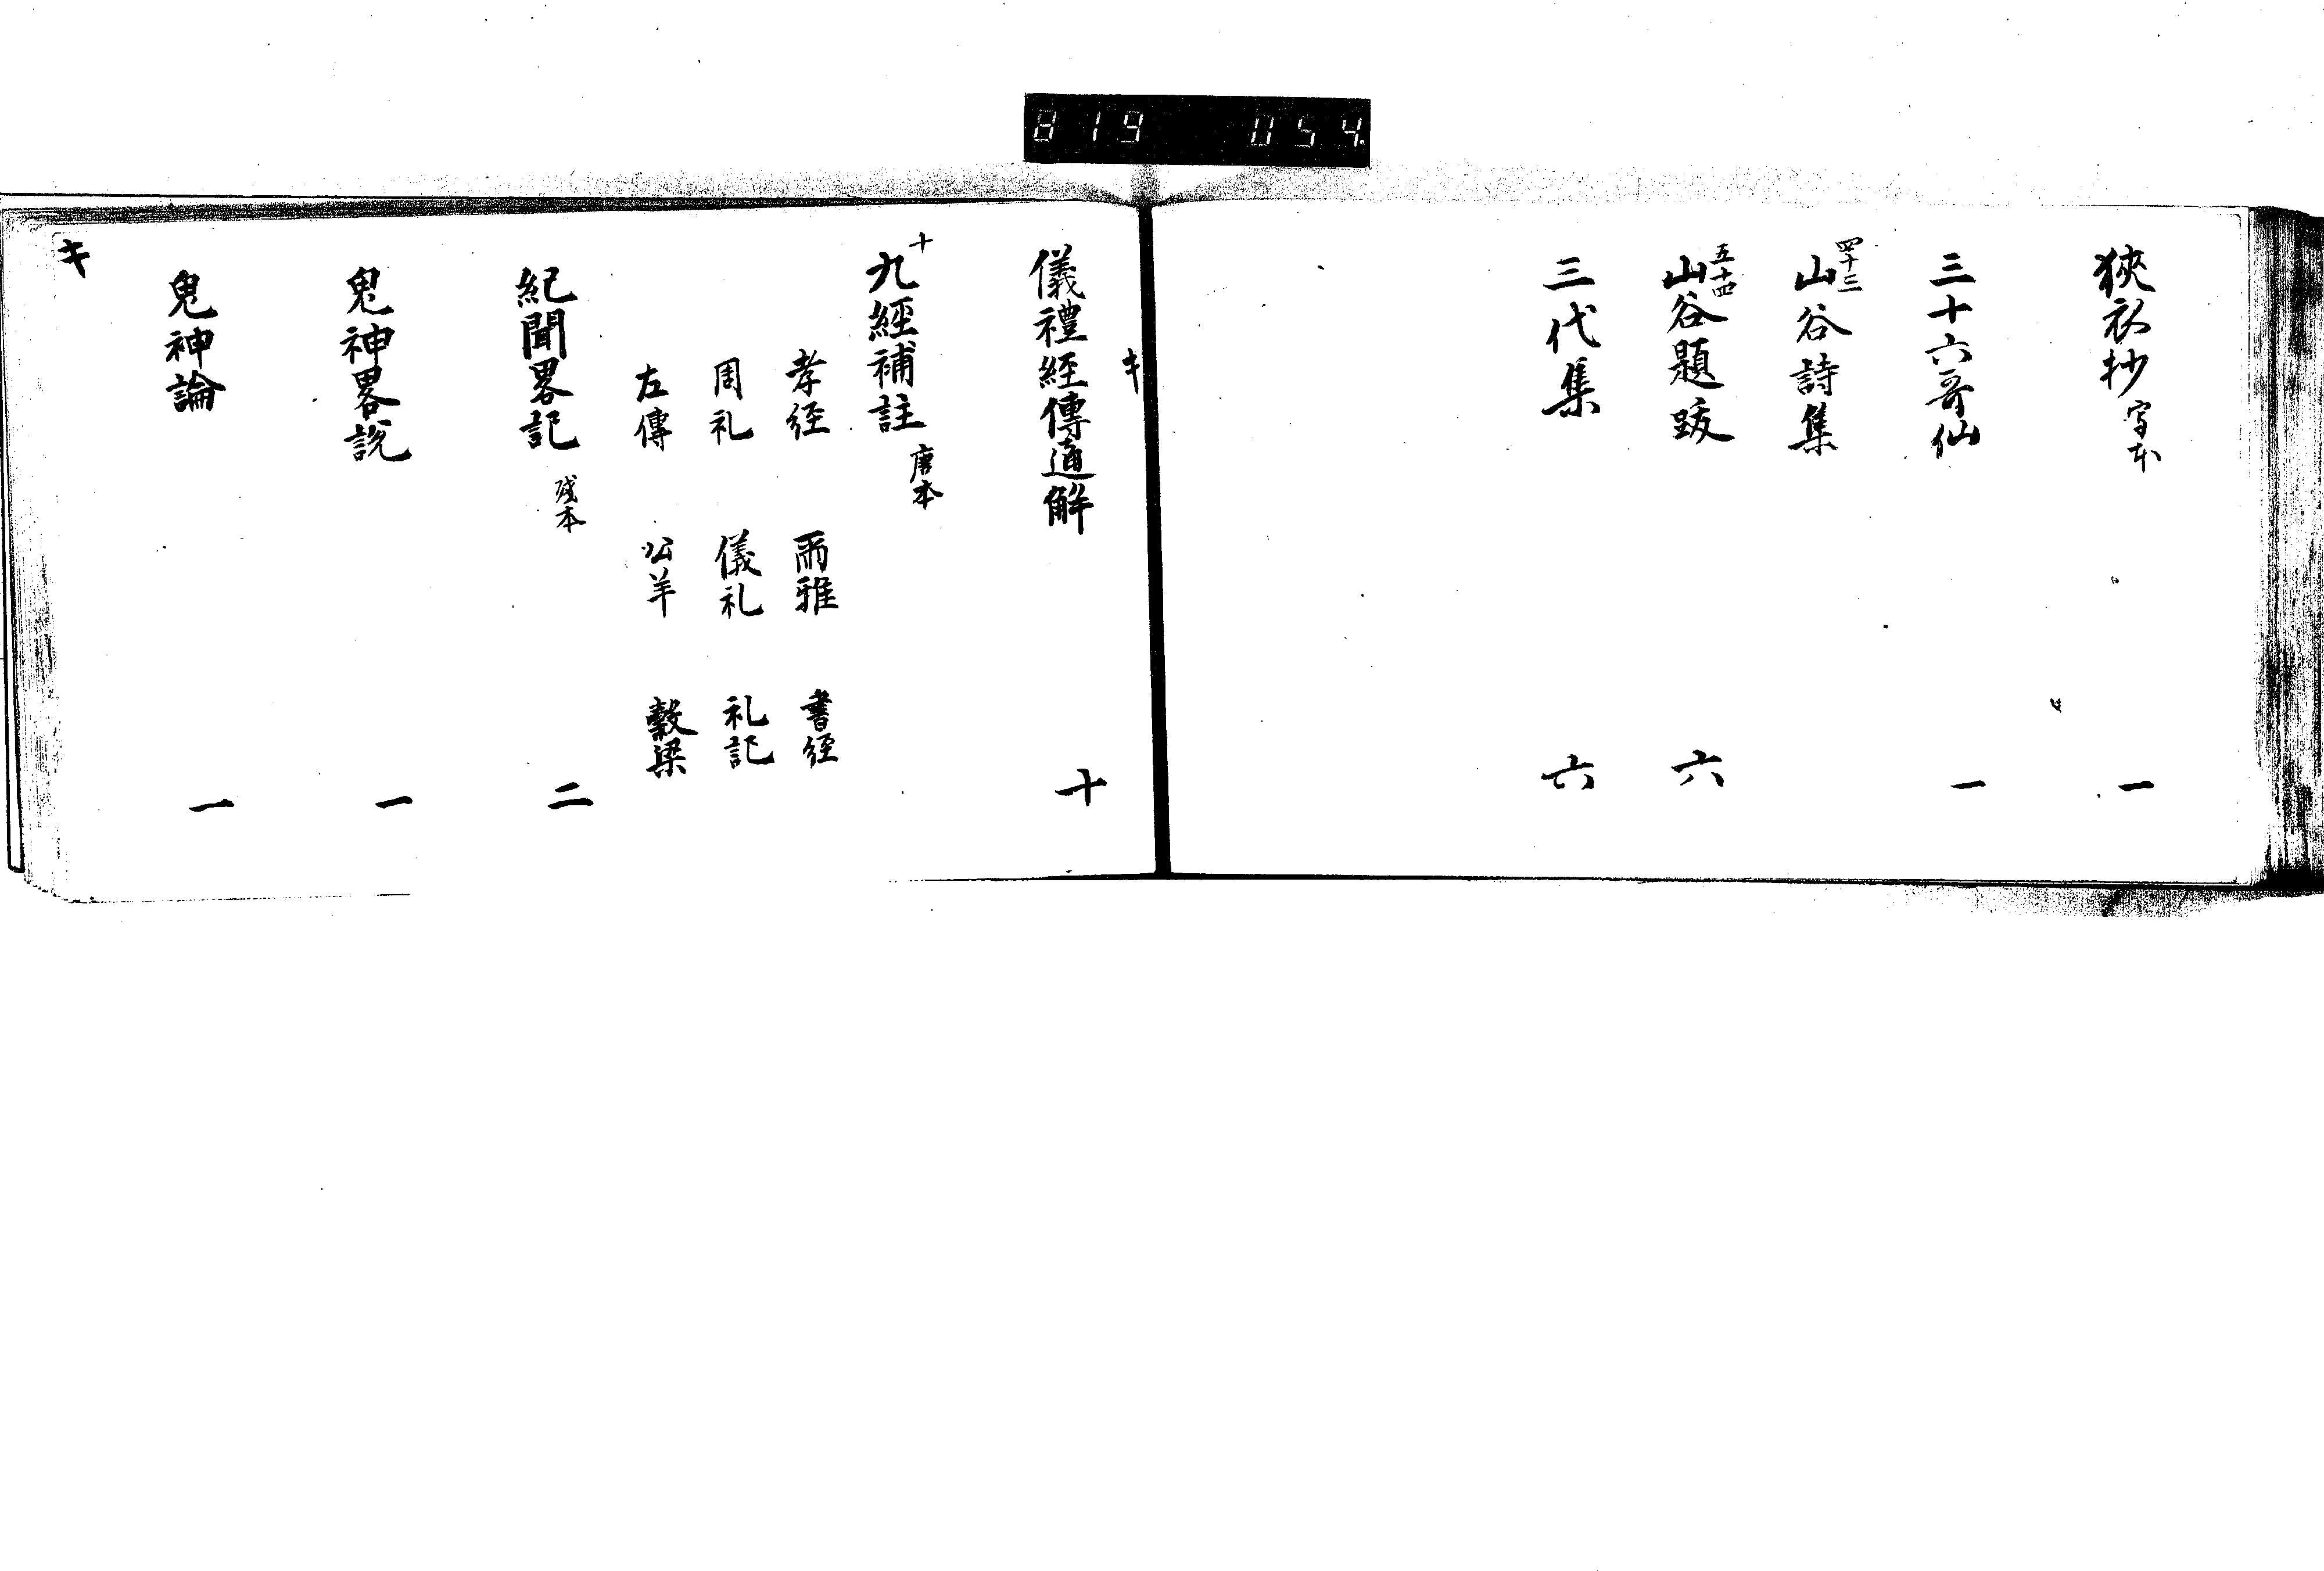 819 054
狹衣抄 写本 一
三十六哥仙 一
四十三 山谷詩集
五十四 山谷題跋 六
三代集 六
キ
儀禮經傳通解 十
十 九經補註 唐本
孝経 爾雅 書経
周礼 儀礼 礼記
左傳 公羊 穀梁
紀聞畧記 残本 二
鬼神畧説 一
鬼神論 一
キ